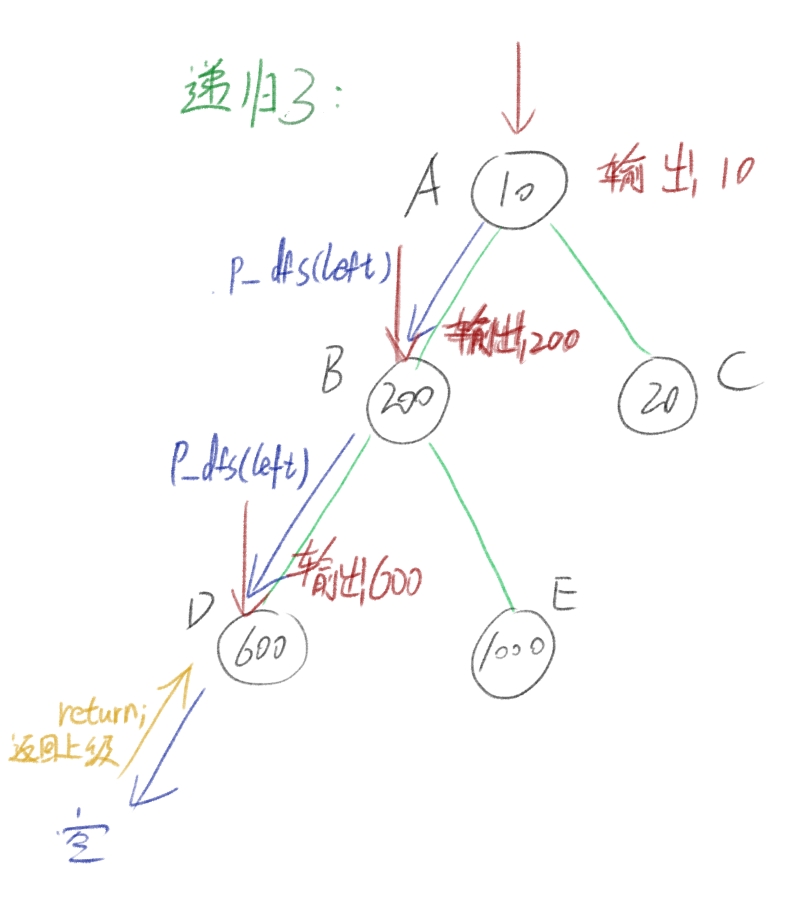 递归3:
A
10
输出10
P_dfs(left)
输出200
B
200
20
C
P_dfs(left)
输出600
D
600
E
1000
return;
返回上级
空